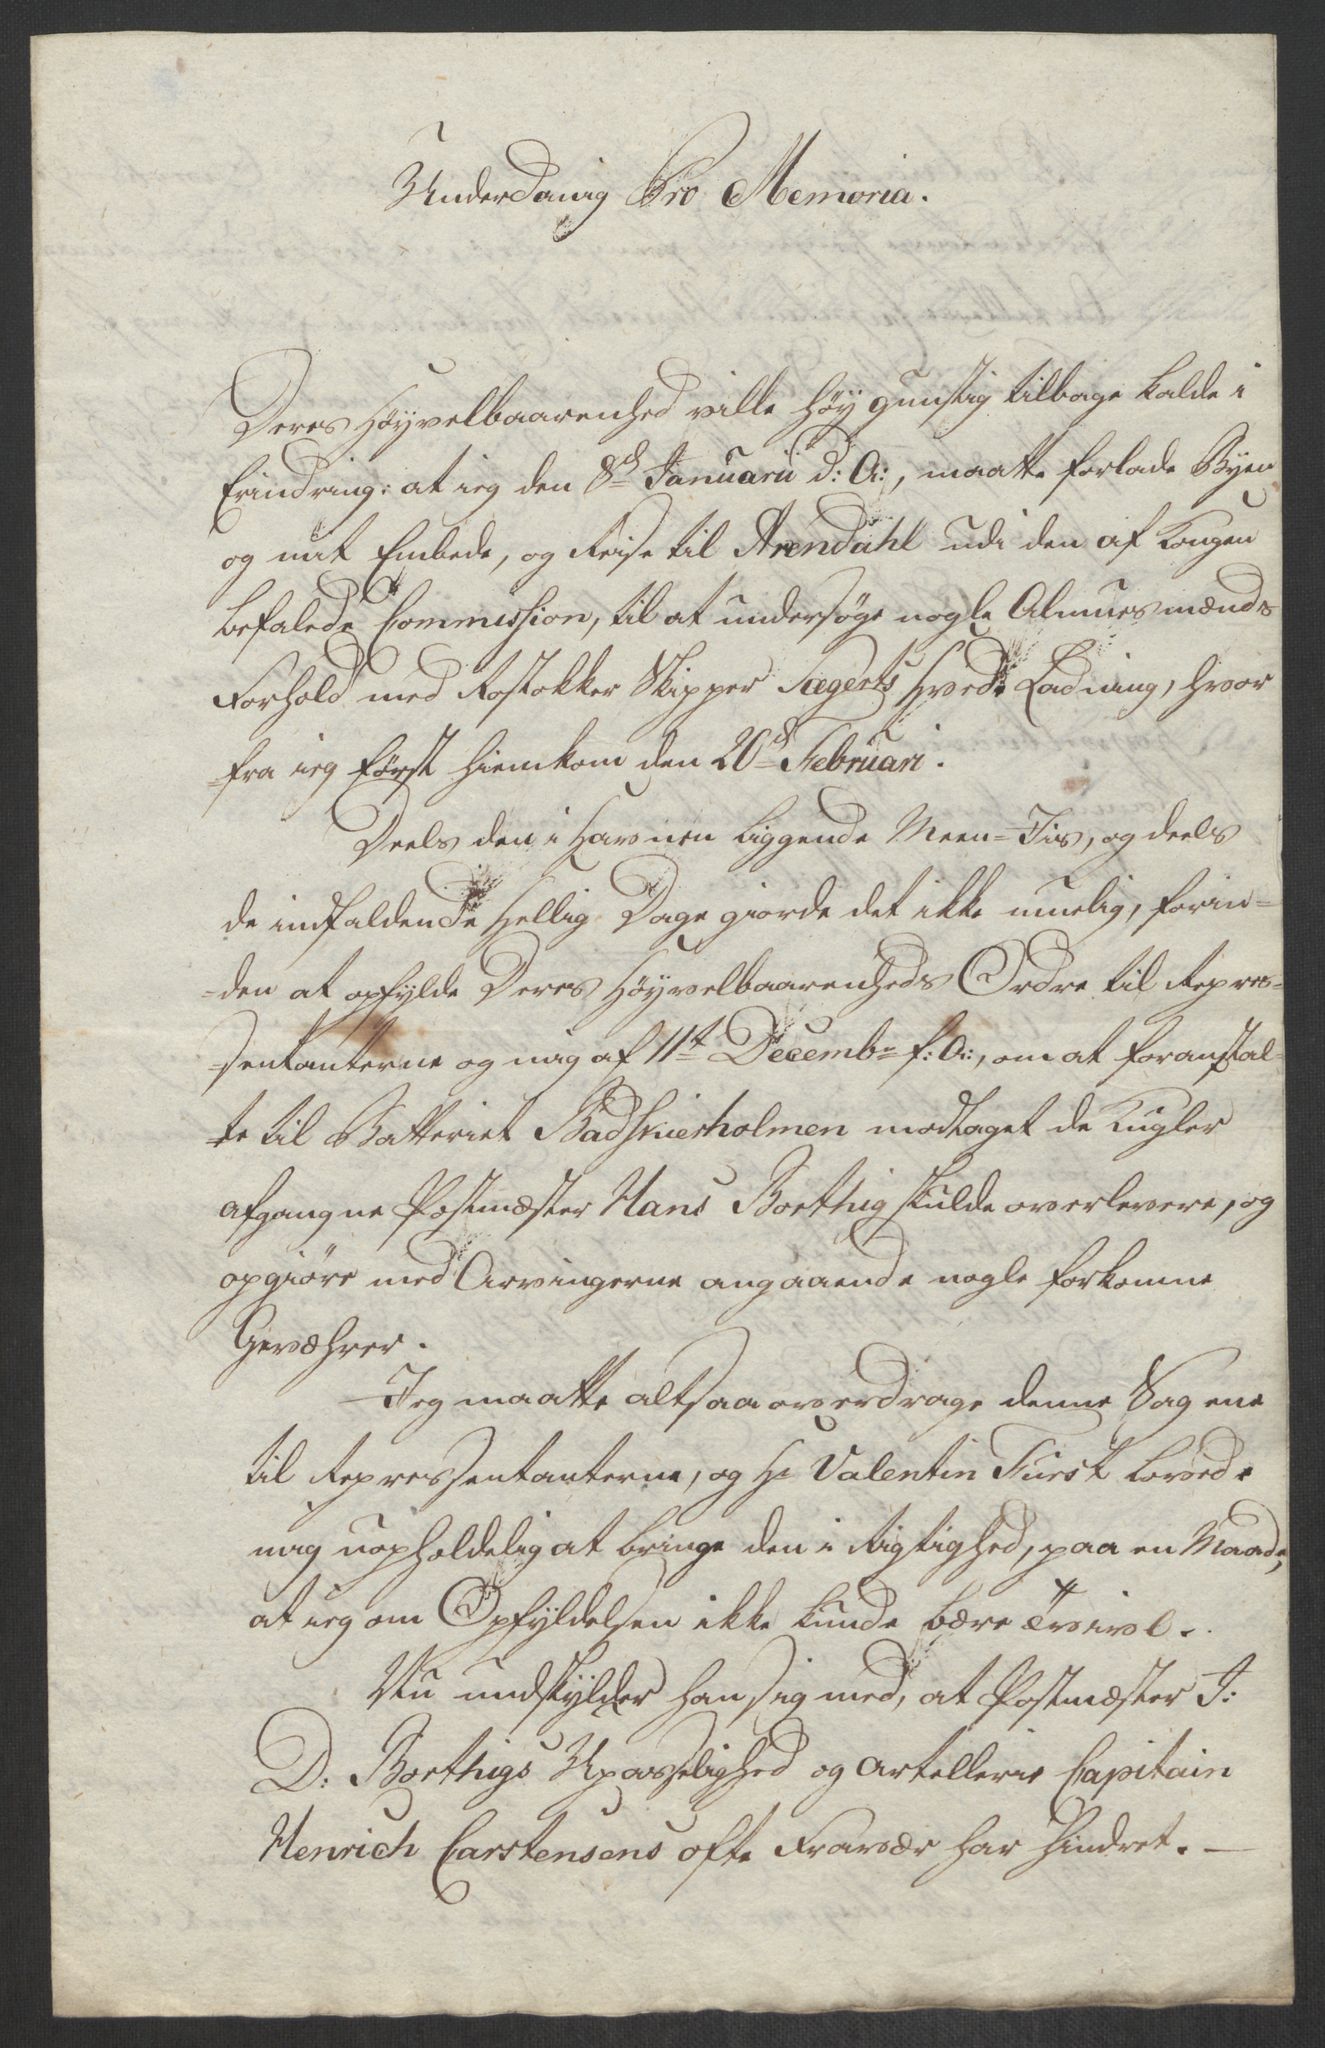 Underdanig Pro Memoria.
Deres Høyvelbaarenhed ville høygunstig tilbage kalde i
Erindring: at ieg den 8d Januarii d: A:, maatte forlade Byen
og mit Embede, og Reise til Arendahl udi den af Kongen
befalede Commission, til at undersøge nogle Almues mænds
Forhold med Rostokker Skipper Fægerts Hvede Ladning, hvor
=fra ieg først hiemkom den 20d Februari.
Deels den i Havnen liggende Meen=Iis, og deels
de indfaldende Hellig Dage giorde det ikke muelig, forin=
=den at opfylde Deres Høyvelbaarenheds Ordre til Repres=
=sentanterne og mig af 11t Decembr f: A:, om at foranstal=
te til Batteriet Badskierholmen modtaget de Kugler
afgangne Postmæster Hans Boethig skulde overlevere, og
opgiøre med Arvingerne angaaende nogle forkomne
Gevæhrer.
Jeg maatte altsaa overdrage denne Sag ene
til Repressentanterne, og Hr Valentin Fürst lovede
mig uopholdelig at bringe den i Rigtighed, paa en Maade,
at ieg om Opfyldelsen ikke kunde bære Tvivl.
Nu undskylder han sig med, at Postmæster J:
D: Boethigs Upasselighed og Artellerie Capitain
Henrich Carstensens ofte Fravær har hindret. —